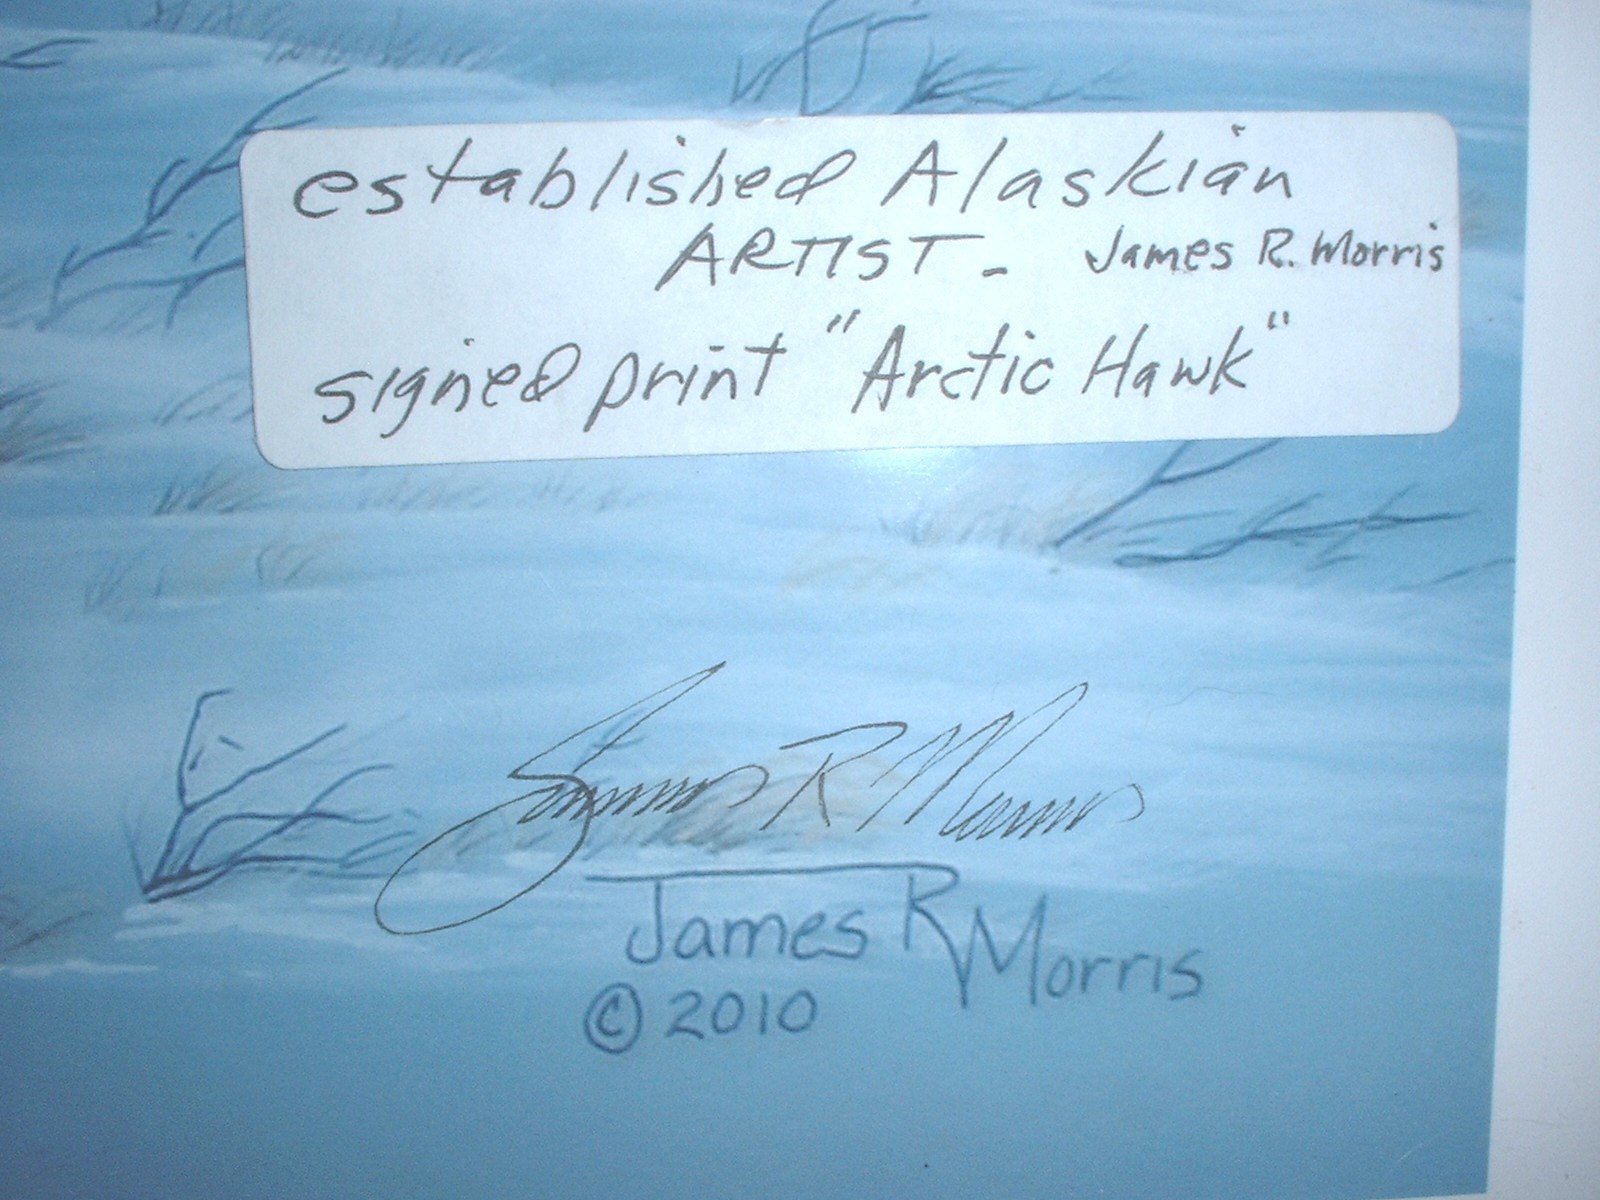 established Alaskian
ARTIST - James R. Morris
signed print "Arctic Hawk"
James R Morris
James R Morris
© 2010